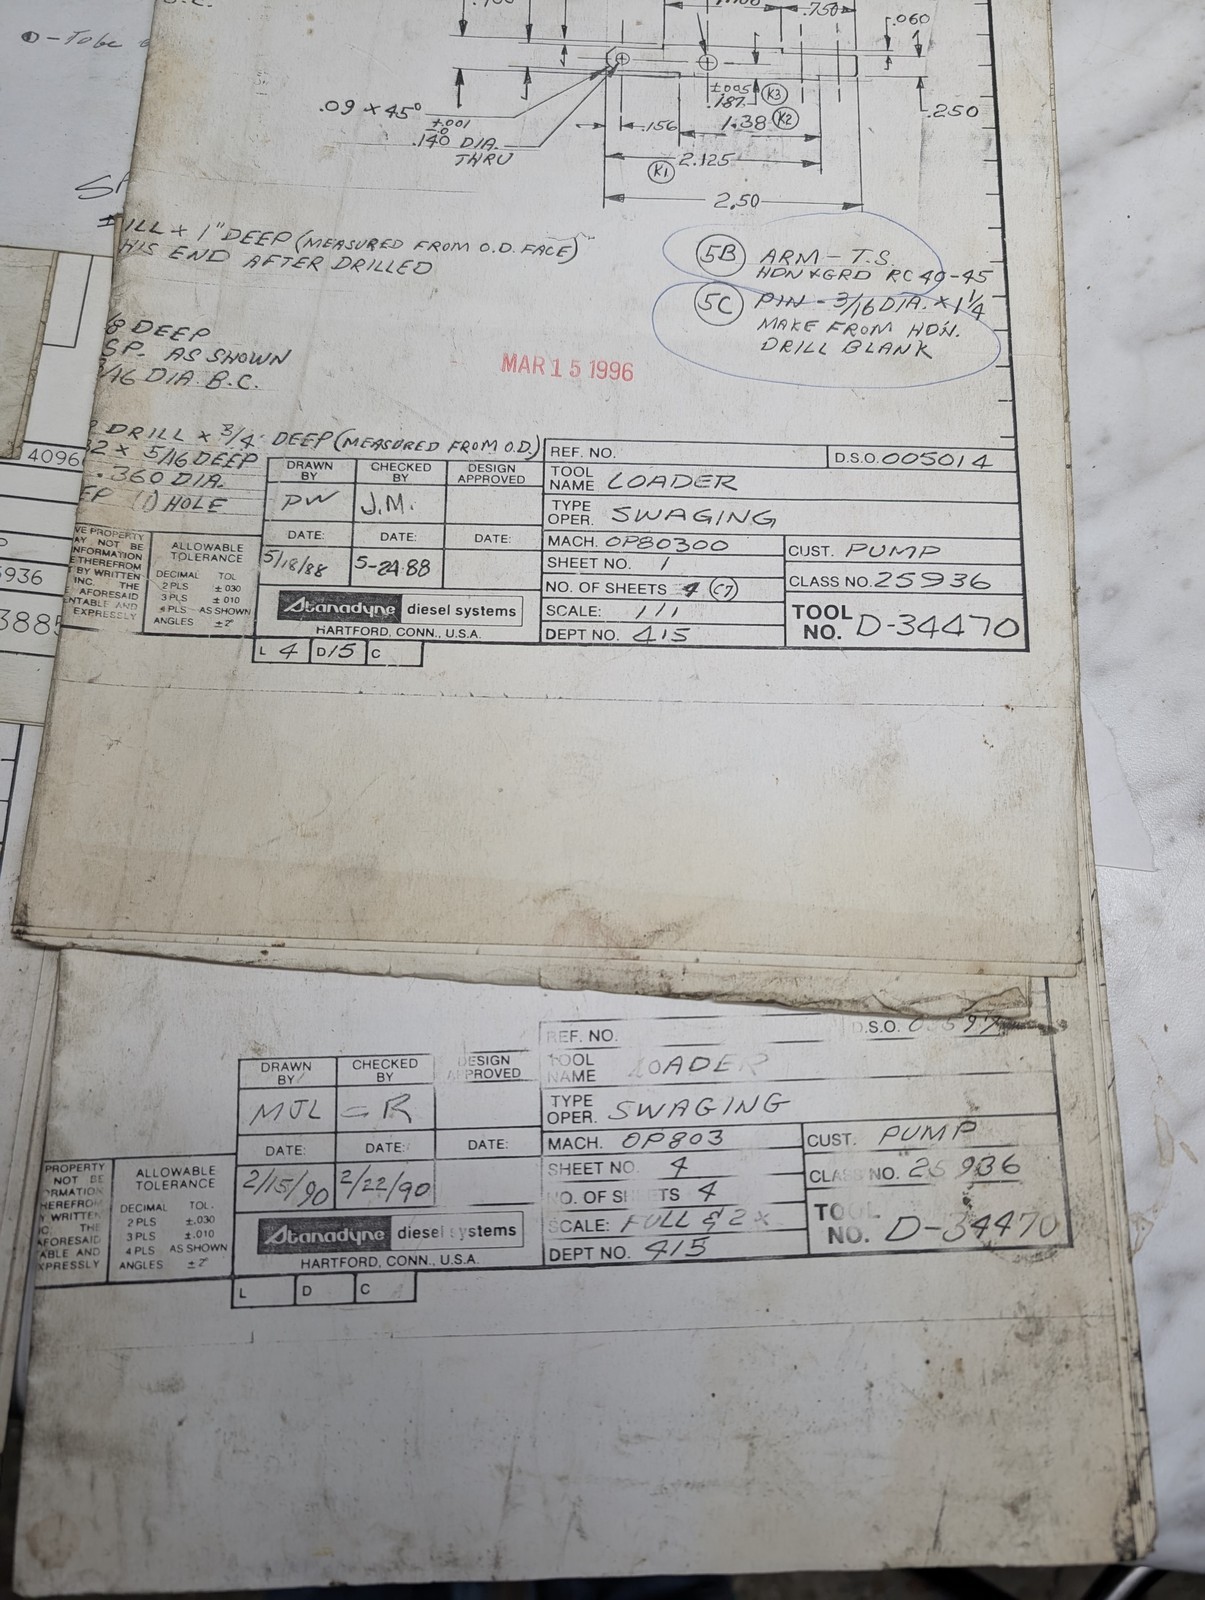 -Tobe
.750
.060
.09 × 45°
+.001
-.0
.140 DIA.
THRU
±.005
.187 K3
.156
1.38 K2
.250
2.125
K1
2.50
1" DEEP (MEASURED FROM O.D. FACE)
END AFTER DRILLED
5B ARM - T.S.
HDN & GRD RC 40-45
5C PIN - 3/16 DIA. × 1 1/4
MAKE FROM HDN.
DRILL BLANK
DEEP
SP. AS SHOWN
DIA. B.C.
MAR 15 1996
DRILL × 3/4 DEEP (MEASURED FROM O.D.)
× 5/16 DEEP
.360 DIA.
(1) HOLE
4096
5936
REF. NO.
D.S.O. 005014
DRAWN BY
CHECKED BY
DESIGN APPROVED
TOOL NAME LOADER
PW
J.M.
TYPE OPER. SWAGING
DATE:
DATE:
DATE:
MACH. OP80300
CUST. PUMP
5/18/88
5-24-88
SHEET NO. 1
CLASS NO. 25936
NO. OF SHEETS 4 (C7)
PROPERTY
AY NOT BE
NFORMATION
THEREFROM
T BY WRITTEN
INC. THE
AFORESAID
NTABLE AND
EXPRESSLY
ALLOWABLE
TOLERANCE
DECIMAL TOL
2 PLS ±.030
3 PLS ±.010
4 PLS AS SHOWN
ANGLES
Stanadyne diesel systems
HARTFORD, CONN., U.S.A.
SCALE: 1/1
DEPT NO. 415
TOOL NO. D-34470
L 4 D 15 C
REF. NO.
D.S.O.
DRAWN BY
CHECKED BY
DESIGN APPROVED
TOOL NAME LOADER
MJL
R
TYPE OPER. SWAGING
DATE:
DATE:
DATE:
MACH. OP803
CUST. PUMP
2/15/90
2/22/90
SHEET NO. 4
CLASS NO. 25936
NO. OF SHEETS 4
PROPERTY
NOT BE
ORMATION
HEREFROM
WRITTEN
THE
AFORESAID
ABLE AND
XPRESSLY
ALLOWABLE
TOLERANCE
DECIMAL TOL.
2 PLS ±.030
3 PLS ±.010
4 PLS AS SHOWN
ANGLES
Stanadyne diesel systems
HARTFORD, CONN., U.S.A.
SCALE: FULL & 2×
DEPT NO. 415
TOOL NO. D-34470
L D C